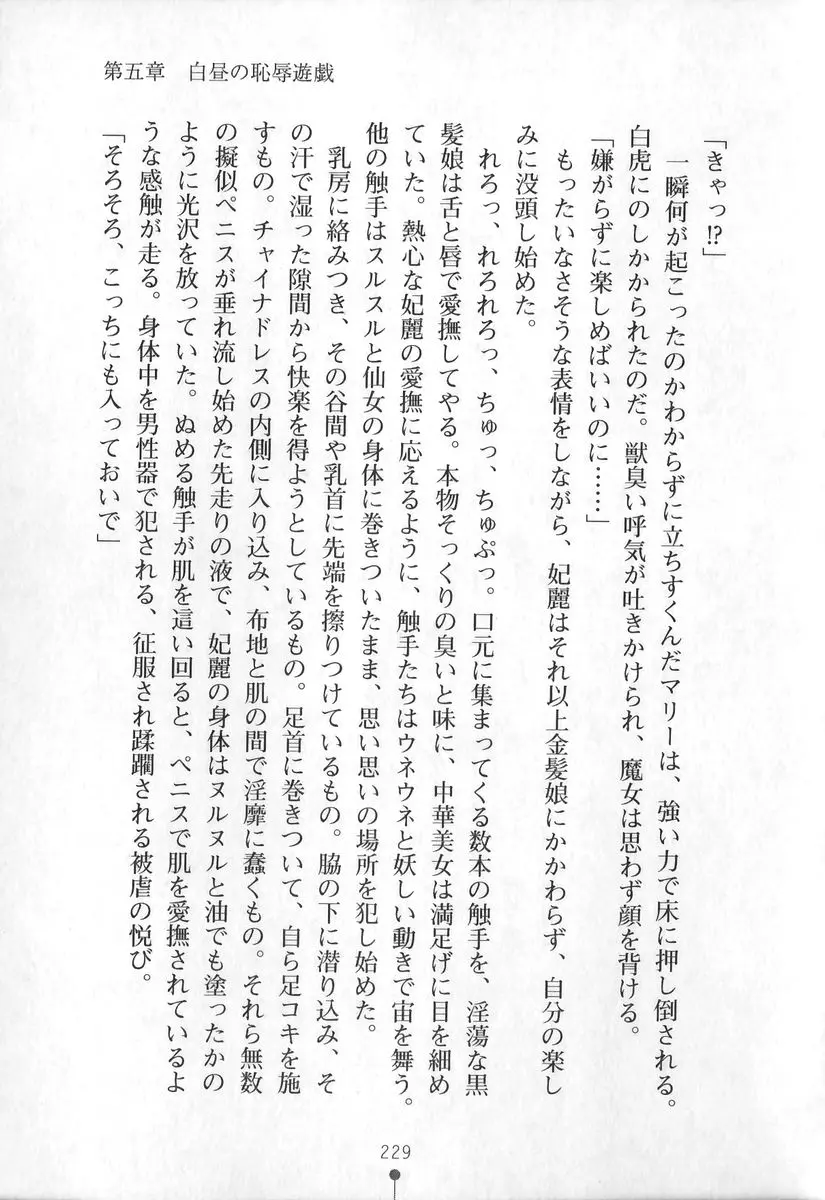 第五章　白昼の恥辱遊戯
「きゃっ!?」
　一瞬何が起こったのかわからずに立ちすくんだマリーは、強い力で床に押し倒される。
白虎にのしかかられたのだ。獣臭い呼気が吐きかけられ、魔女は思わず顔を背ける。
「嫌がらずに楽しめばいいのに……」
　もったいなさそうな表情をしながら、妃麗はそれ以上金髪娘にかかわらず、自分の楽し
みに没頭し始めた。
　れろっ、れろれろっ、ちゅっ、ちゅぷっ。口元に集まってくる数本の触手を、淫蕩な黒
髪娘は舌と唇で愛撫してやる。本物そっくりの臭いと味に、中華美女は満足げに目を細め
ていた。熱心な妃麗の愛撫に応えるように、触手たちはウネウネと妖しい動きで宙を舞う。
他の触手はスルスルと仙女の身体に巻きついたまま、思い思いの場所を犯し始めた。
　乳房に絡みつき、その谷間や乳首に先端を擦りつけているもの。脇の下に潜り込み、そ
の汗で湿った隙間から快楽を得ようとしているもの。足首に巻きついて、自ら足コキを施
すもの。チャイナドレスの内側に入り込み、布地と肌の間で淫靡に蠢くもの。それら無数
の擬似ペニスが垂れ流し始めた先走りの液で、妃麗の身体はヌルヌルと油でも塗ったかの
ように光沢を放っていた。ぬめる触手が肌を這い回ると、ペニスで肌を愛撫されているよ
うな感触が走る。身体中を男性器で犯される、征服され蹂躙される被虐の悦び。
「そろそろ、こっちにも入っておいで」
229